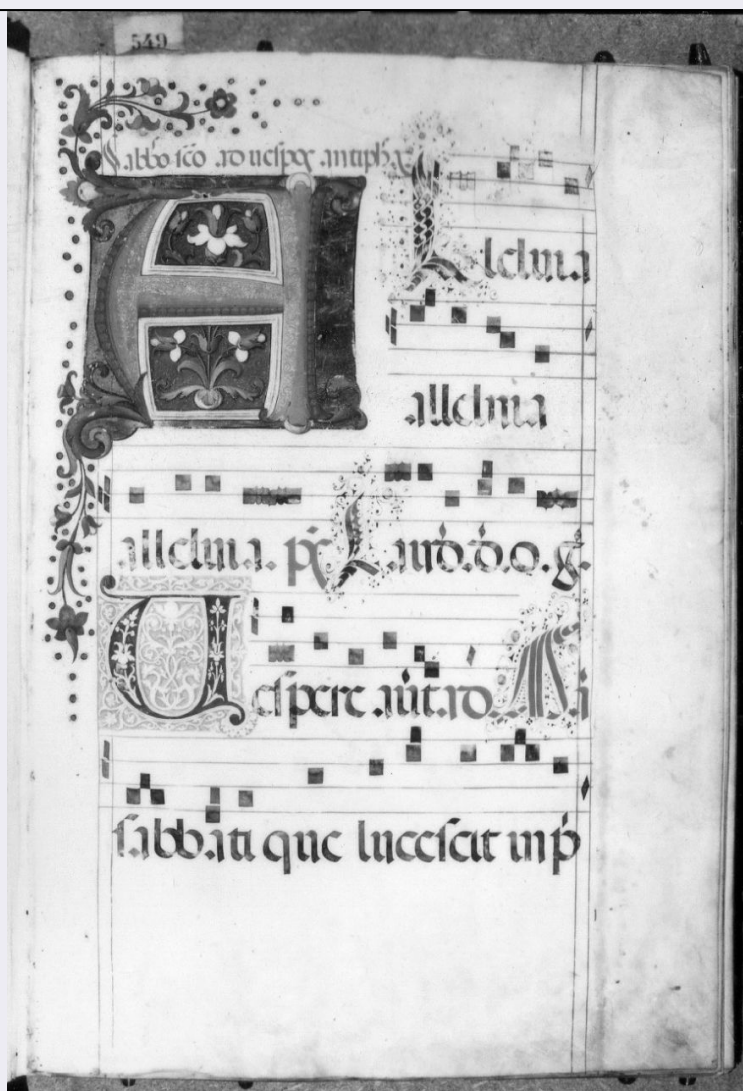 549
Sabbō scō ad uesperꝝ antiphª
A Lleluia
alleluia
alleluia. ps̄ Laud.d.o.g.
Uespere aūt. ad M̄
sabbati que lucescit in p̄